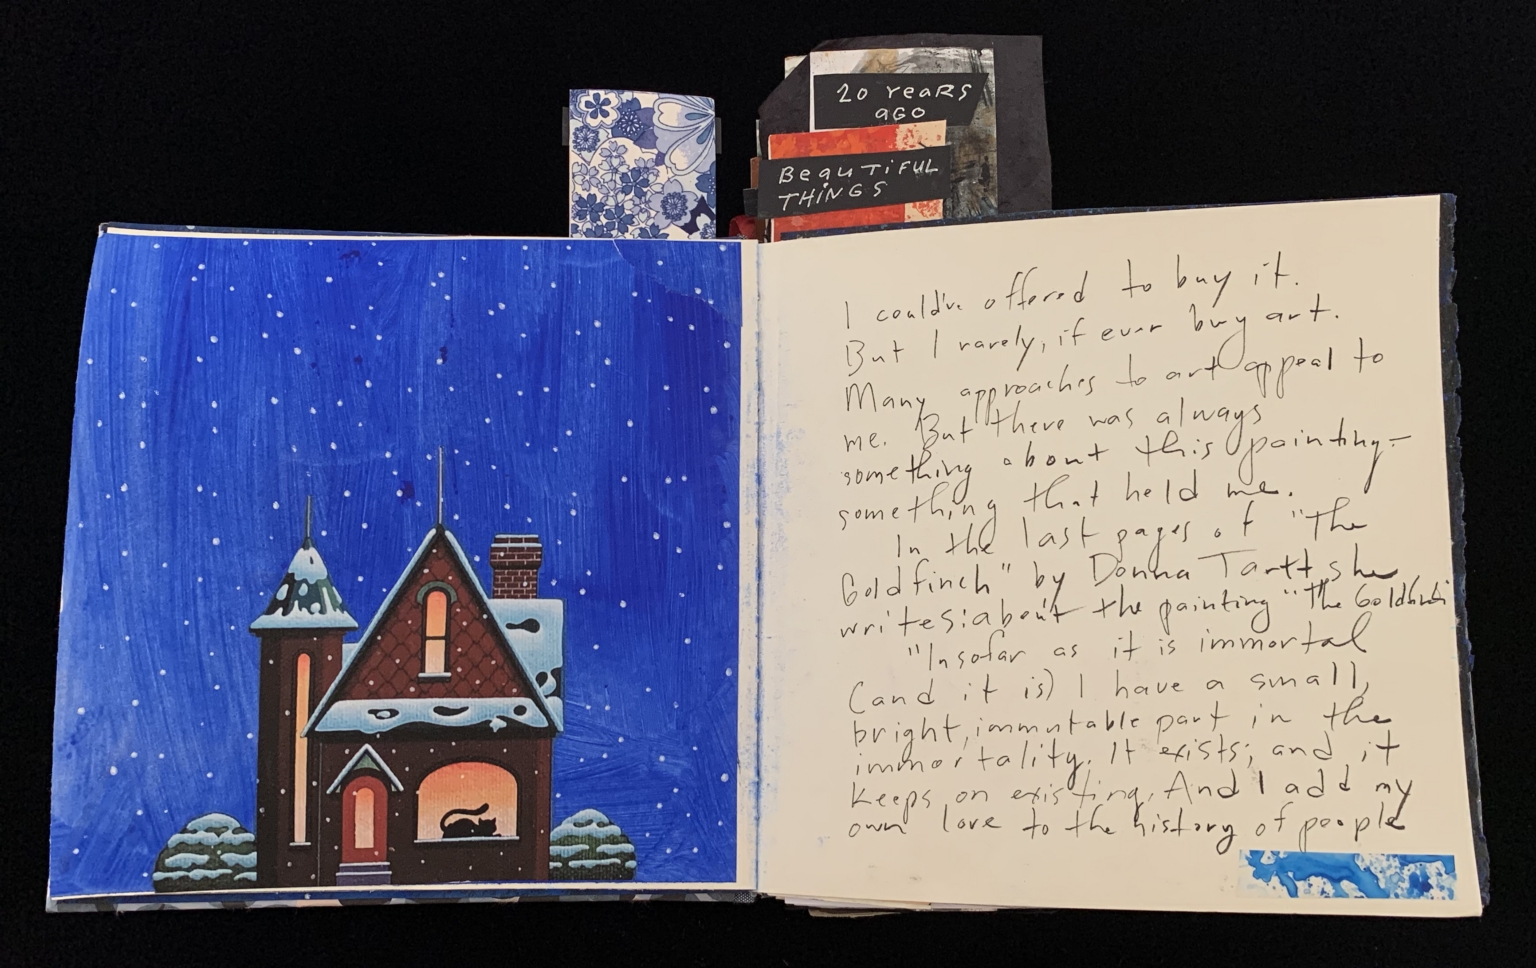 20 YEARS
AGO
BEAUTIFUL
THINGS
I could've offered to buy it.
But I rarely, if ever buy art.
Many approaches to art appeal to
me. But there was always
something about this painting–
something that held me.
In the last pages of "The
Goldfinch" by Donna Tartt, she
writes about the painting "The
"Insofar as it is immortal
(and it is) I have a small,
bright, immutable part in the
immortality. It exists; and it
keeps on existing. And I add my
own love to the history of people